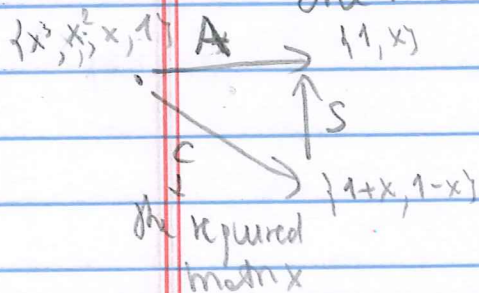 {x³, x², x, 1} A {1, x}
S
C
{1+x, 1-x}
the required
matrix